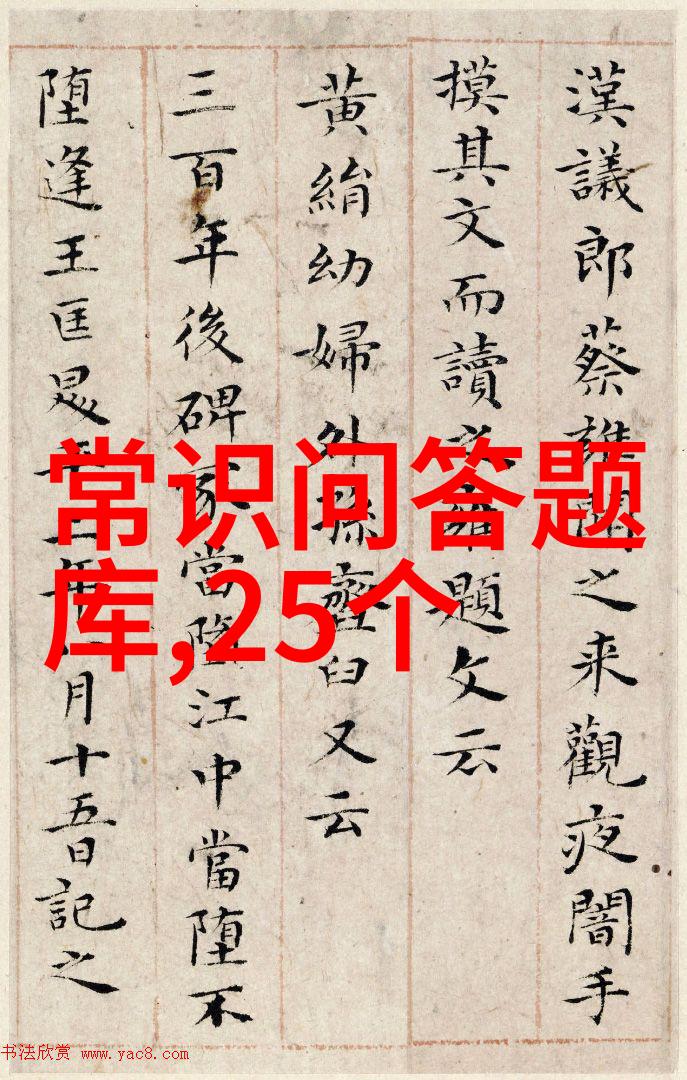 漢議郎蔡雍聞之来觀夜闇手
摸其文而讀之雍題文云
黄絹幼婦外孫齏臼又云
三百年後碑冢當堕江中當堕不
堕逢王匡昇平二年月十五日記之
常识问答题
库,25个
书法欣赏 www.yac8.com